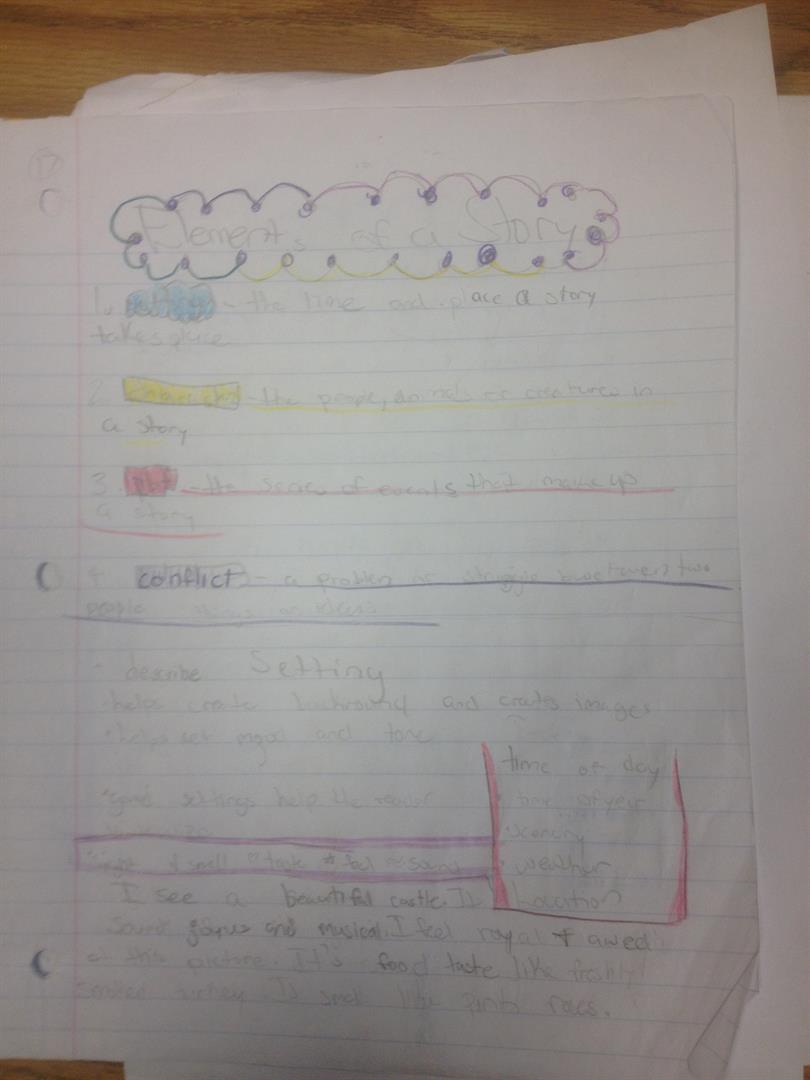 17
Elements of a Story
1. setting - the time and place a story
takes place
2. - the people, animals or creatures in
a story
3. plot - the seares of events that make up
a story
4. conflict - a problem or struggle two
people things or ideas
describe Setting
helps create backround and crats images
helps set mood and tone
time of day
time of year
scenery
weather
Location
*good settings help the reader
sight smell taste feel sound
I see a beautiful castle. It
sound and musical. I feel royal & awed
at this picture. It's food taste like freshly
smoked It smell like pink roes.